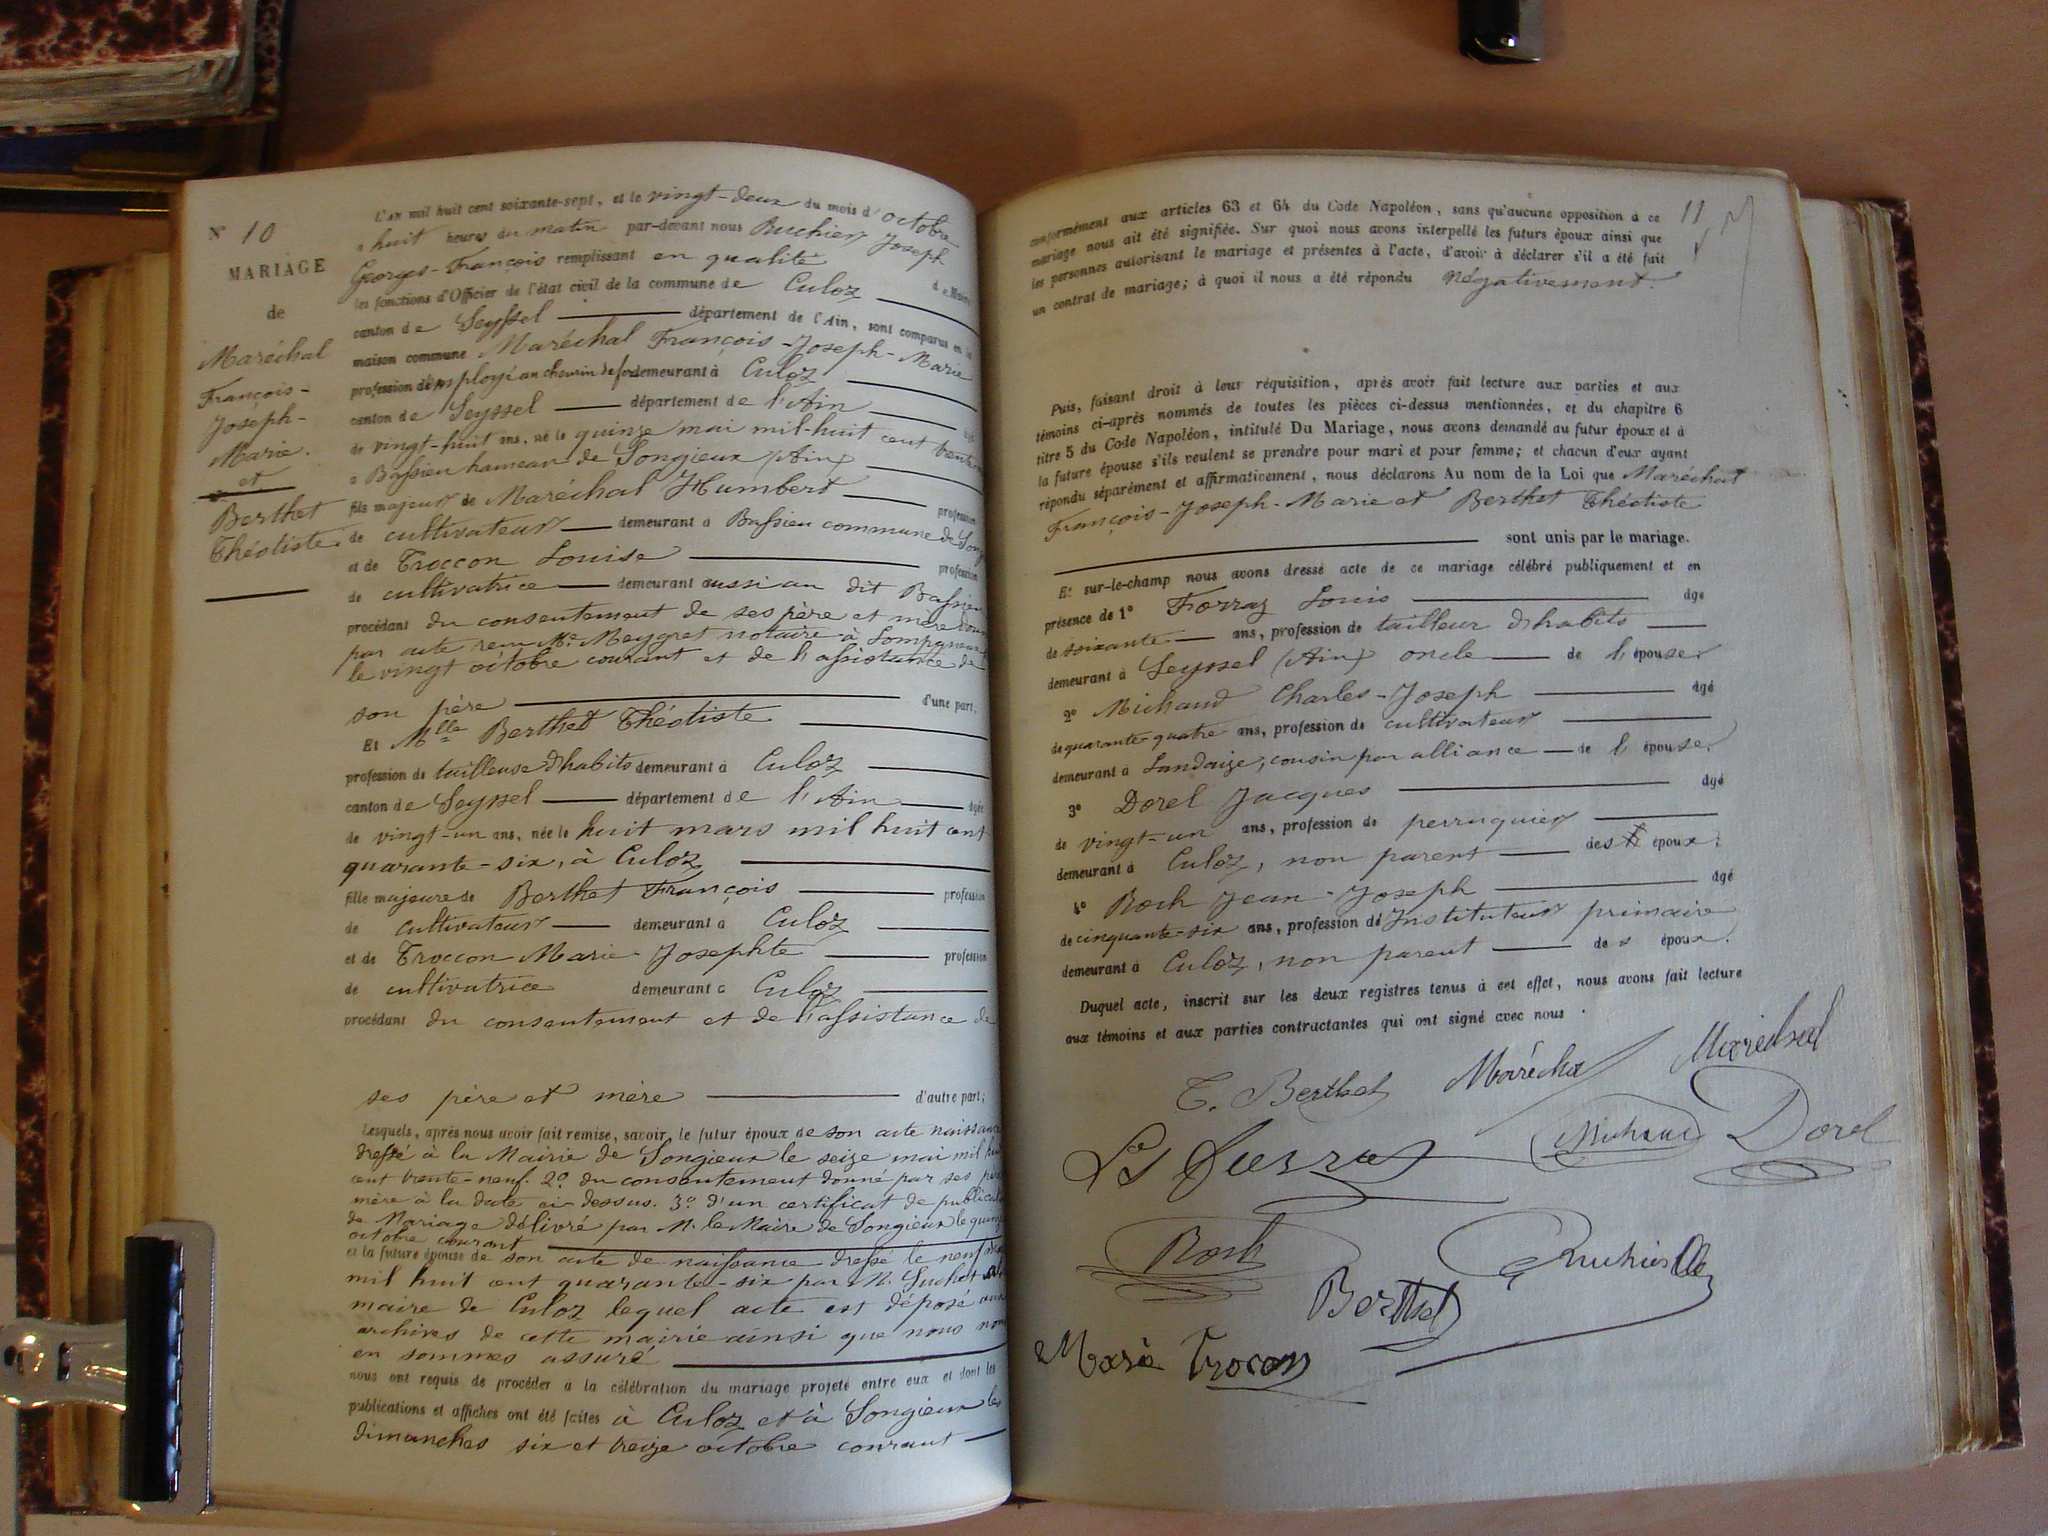 N° 10
MARIAGE
de
Maréchal
François-
Joseph-
Marie.
et
Berthet
Théotiste.
L'an mil huit cent soixante-sept, et le vingt-deux du mois d'octobre
a huit heures du matin par-devant nous Ruchier Joseph
Georges-François remplissant en qualité de Maire
les fonctions d'Officier de l'état civil de la commune de Culoz
canton de Seyssel département de l'Ain, sont comparus en la
maison commune Maréchal François-Joseph-Marie
profession d'employé au chemin de fer demeurant à Culoz
canton de Seyssel département de l'Ain
de vingt-huit ans, né le quinze mai mil-huit cent trente
a Bassieu hameau de Songieux (Ain)
fils majeur de Maréchal Humbert profession
de cultivateur demeurant à Bassieu commune de Song
et de Troccon Louise profession
de cultivatrice demeurant aussi au dit Bassieu
procédant du consentement de ses père et mère donné
par acte reçu Me Meygret notaire à Lompnieu
le vingt octobre courant et de l'assistance de
son père d'une part;
Et Mlle Berthet Théotiste
profession de tailleuse d'habits demeurant à Culoz
canton de Seyssel département de l'Ain âgée
de vingt-un ans, née le huit mars mil huit cent
quarante-six, à Culoz
fille majeure de Berthet François profession
de cultivateur demeurant a Culoz
et de Troccon Marie-Josephte profession
de cultivatrice demeurant à Culoz
procédant du consentement et de l'assistance de
ses père et mère d'autre part;
Lesquels, après nous avoir fait remise, savoir, le futur époux de son acte naissance
dressé à la Mairie de Songieux le seize mai mil huit
cent trente-neuf. 2° du consentement donné par ses père
mère à la date ci-dessus. 3° d'un certificat de publication
de Mariage délivré par M. le Maire de Songieux le quinze
octobre courant
et la future épouse de son acte de naissance dressé le neuf mars
mil huit cent quarante-six par M. Suchet
maire de Culoz lequel acte est déposé aux
archives de cette mairie ainsi que nous nous
en sommes assuré
nous ont requis de procéder à la célébration du mariage projeté entre eux et dont les
publications et affiches ont été faites à Culoz et à Songieux les
dimanches six et treize octobre courant
11
conformément aux articles 63 et 64 du Code Napoléon, sans qu'aucune opposition à ce
mariage nous ait été signifiée. Sur quoi nous avons interpellé les futurs époux ainsi que
les personnes autorisant le mariage et présentes à l'acte, d'avoir à déclarer s'il a été fait
un contrat de mariage; à quoi il nous a été répondu négativement.
Puis, faisant droit à leur réquisition, après avoir fait lecture aux parties et aux
témoins ci-après nommés de toutes les pièces ci-dessus mentionnées, et du chapitre 6
titre 5 du Code Napoléon, intitulé Du Mariage, nous avons demandé au futur époux et à
la future épouse s'ils veulent se prendre pour mari et pour femme; et chacun d'eux ayant
répondu séparément et affirmativement, nous déclarons Au nom de la Loi que Maréchal
François-Joseph-Marie et Berthet Théotiste
sont unis par le mariage.
Et sur-le-champ nous avons dressé acte de ce mariage célébré publiquement et en
présence de 1° Forraz Louis âgé
de soixante ans, profession de tailleur d'habits
demeurant à Seyssel (Ain) oncle de l'épouse.
2° Michaud Charles-Joseph âgé
de quarante-quatre ans, profession de cultivateur
demeurant à Landaize, cousin par alliance de l'épouse.
3° Dorel Jacques âgé
de vingt-un ans, profession de perruquier
demeurant à Culoz, non parent des époux.
4° Roch Jean-Joseph âgé
de cinquante-six ans, profession d'Instituteur primaire
demeurant à Culoz, non parent des époux.
Duquel acte, inscrit sur les deux registres tenus à cet effet, nous avons fait lecture
aux témoins et aux parties contractantes qui ont signé avec nous.
T. Berthet Maréchal Maréchal
Michaud Dorel
Roch Ruchier
Berthet
Marie Trocon